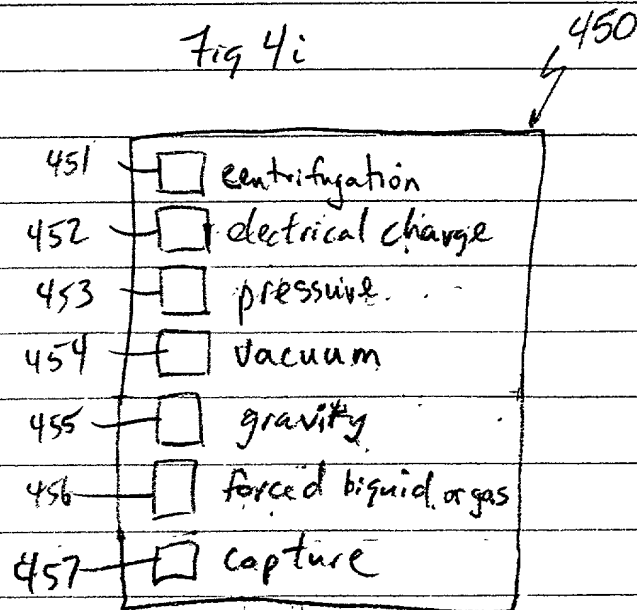 Fig 4i
450
451 centrifugation
452 electrical charge
453 pressure
454 vacuum
455 gravity
456 forced liquid or gas
457 capture